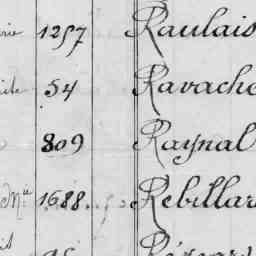 1257 Raulais
54 Ravacho
809 Raynal
Mie 1688 Rebillar